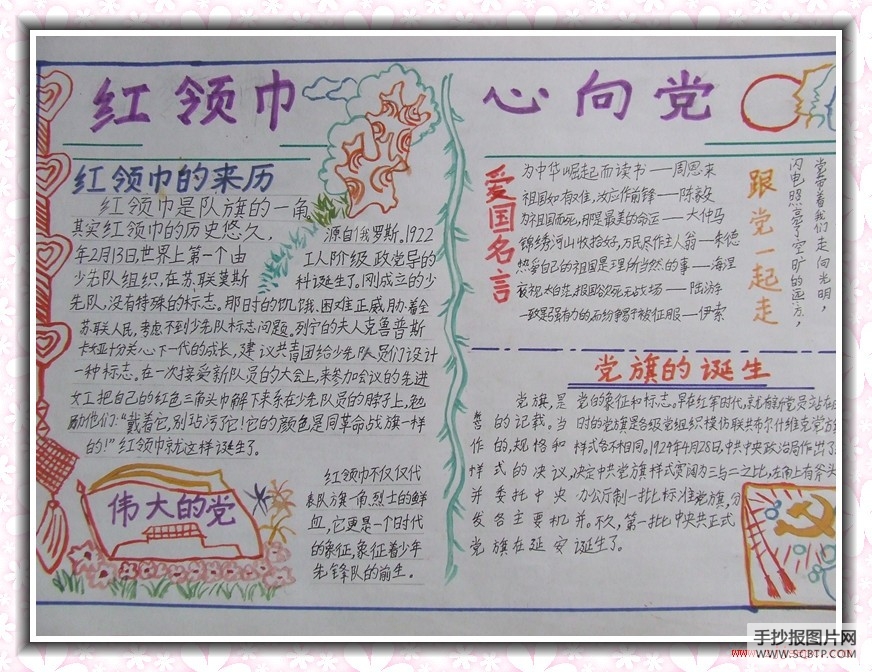 红领巾 心向党
红领巾的来历
红领巾是队旗的一角
其实红领巾的历史悠久，源自俄罗斯。1922
年2月13日世界上第一个由工人阶级政党导的
少先队组织，在苏联莫斯科诞生了。刚成立的少
先队，没有特殊的标志。那时的饥饿、困难正威胁着全
苏联人民，考虑不到少先队标志问题。列宁的夫人克鲁普斯
卡娅十分关心下一代的成长，建议共青团给少先队员们设计
一种标志。在一次接受新队员的大会上，来参加会议的先进
女工把自己的红色三角头巾解下来系在少先队员的脖子上，勉
励他们："戴着它，别玷污它！它的颜色是同革命战旗一样
的！"红领巾就这样诞生了。
伟大的党
红领巾不仅仅代
表队旗一角，烈士的鲜
血，它更是一个时代
的象征，象征着少年
先锋队的前生。
爱国名言
为中华崛起而读书——周恩来
祖国如有难，汝应作前锋——陈毅
为祖国而死，那是最美的命运——大仲马
锦绣河山收拾好，万民尽作主人翁——朱德
热爱自己的祖国是理所当然的事——海涅
报国欲死无战场——陆游
一致是强有力的，而纷争易于被征服——伊索
跟党一起走
党带着我们走向光明，
闪电照亮了空旷的远方，
党旗的诞生
党旗，是党的象征和标志。早在红军时代，就有新党员站在
誓的记载。当时的党旗是各级党组织模仿联共布尔什维克党方
作的，规格和样式各不相同。1924年4月28日，中共中央政治局作出了
样式的决议，决定中共党旗样式宽阔为三与二之比，左角上有斧头
并委托中央办公厅制一批标准党旗，分
发各主要机关。不久，第一批中共正式
党旗在延安诞生了。
手抄报图片网
WWW.SCBTP.COM